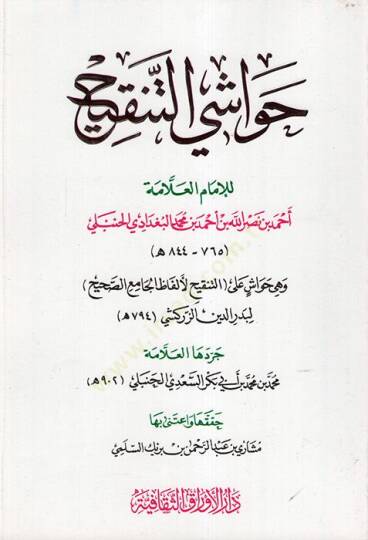 حَواشي التَّنقيح
للإمام العلَّامة
أحمد بن نصر الله بن أحمد بن محمد البغدادي الحنبلي
(٧٦٥ - ٨٤٤ هـ)
وهي حواشٍ على (التنقيح لألفاظ الجامع الصحيح)
لبدر الدين الزركشي (٧٩٤هـ)
جرّدها العلّامة
محمد بن محمد بن أبي بكر السعدي الحنبلي (٩٠٢هـ)
حققها واعتنى بها
مشاري بن عبد الرحمن بن برنك السلعي
دار الأوراق الثقافية